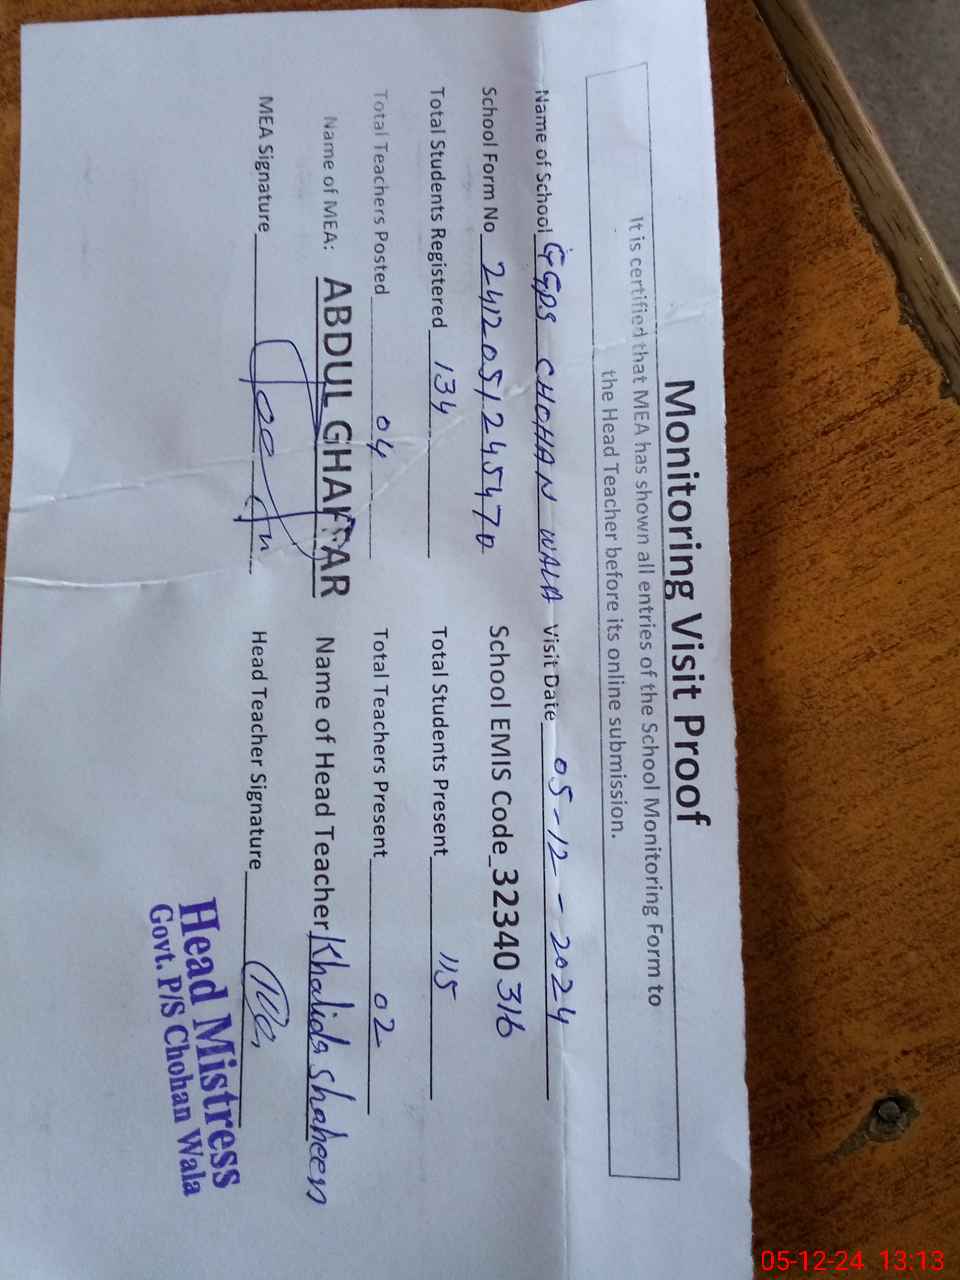 Monitoring Visit Proof
It is certified that MEA has shown all entries of the School Monitoring Form to
the Head Teacher before its online submission.
Name of School GGPS CHOHAN WALA Visit Date 05-12-2024
School Form No 2412051245470 School EMIS Code_32340 316
Total Students Registered 134 Total Students Present 115
Total Teachers Posted 04 Total Teachers Present 02
Name of MEA: ABDUL GHAFFAR Name of Head Teacher Khalida shaheen
MEA Signature Head Teacher Signature
Head Mistress
Govt. P/S Chohan Wala
05-12-24 13:13